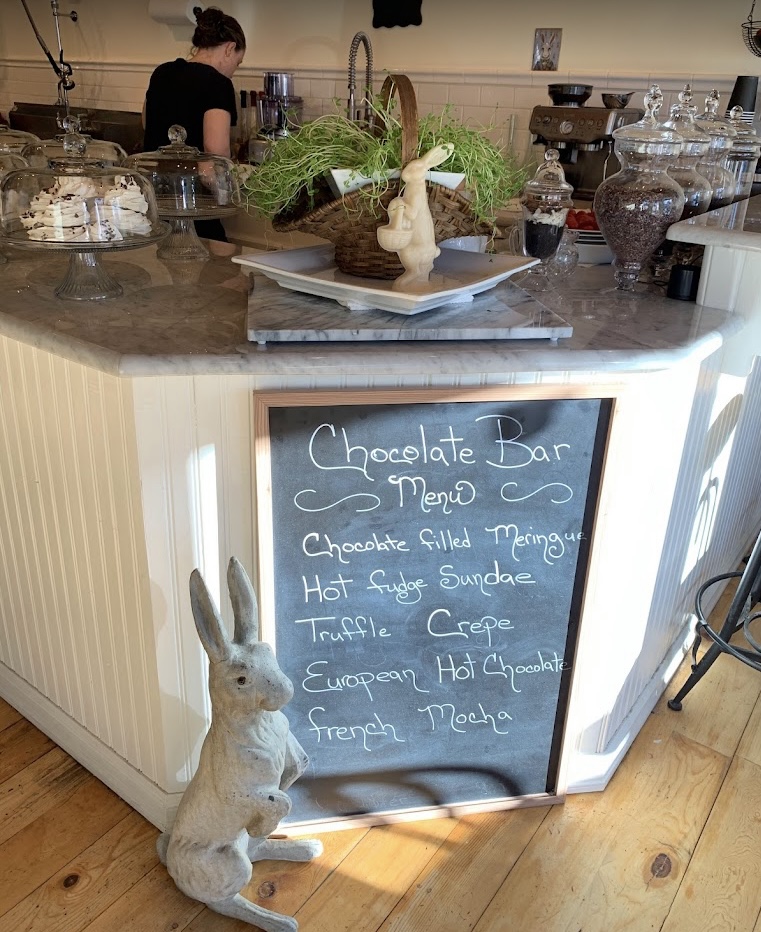 Chocolate Bar
Menu
Chocolate filled Meringue
Hot fudge Sundae
Truffle Crepe
European Hot Chocolate
french Mocha